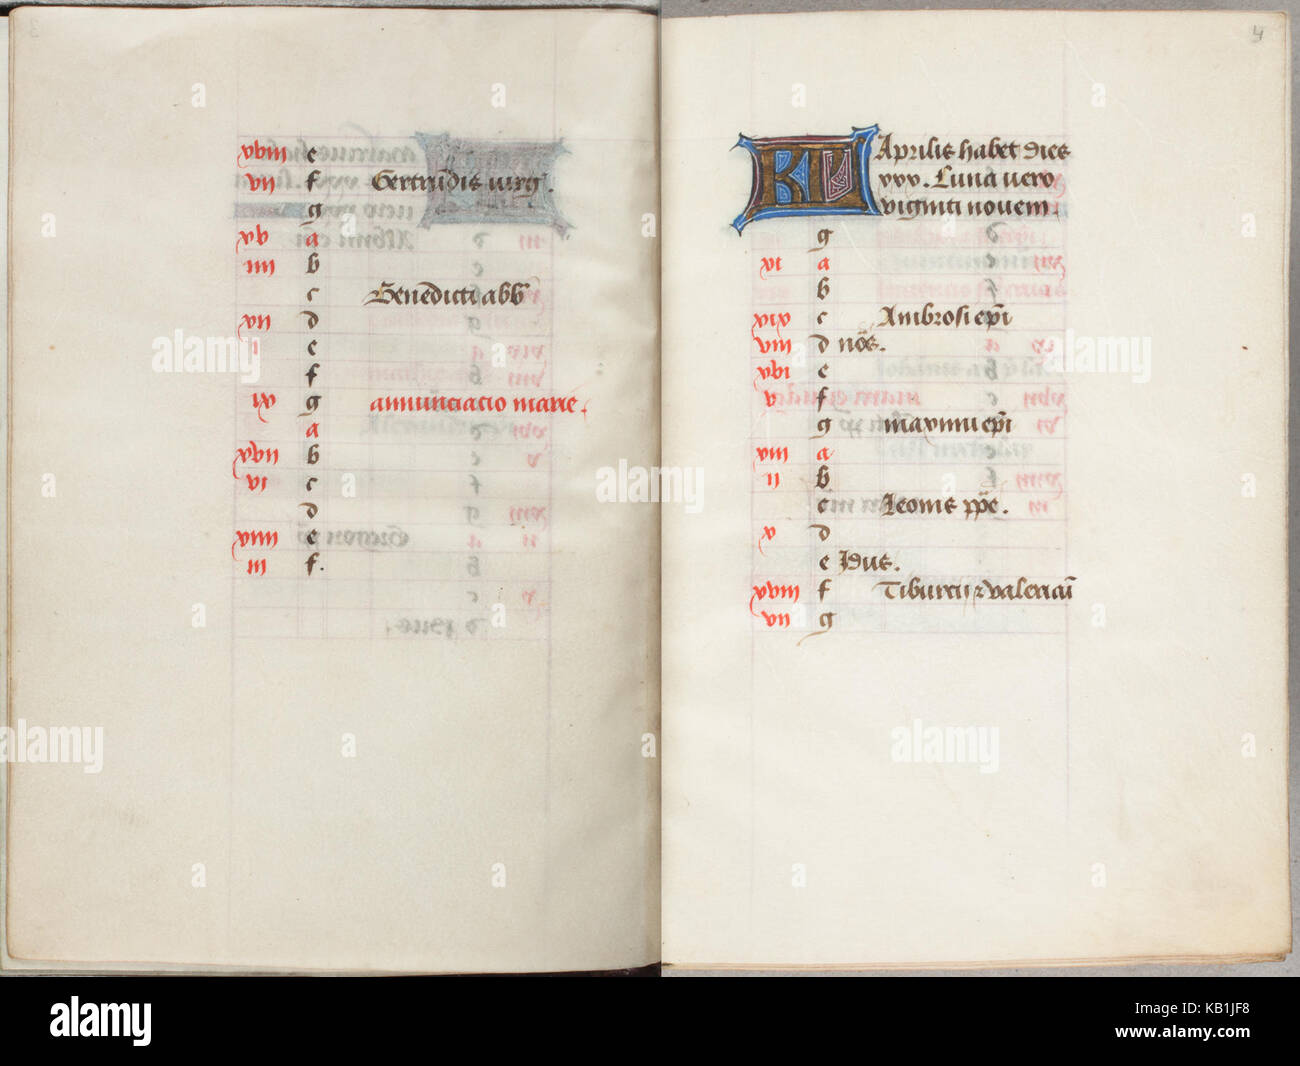 xviii e
vii f Gertrudis virg.
g
xv a
iiii b
c Benedicti abb
vii d
i e
f
ix g annunciacio marie.
a
xvii b
vi c
d
xiiii e
iii f.
4
KL Aprilis habet dies
xxx. Luna vero
viginti novem.
g
xi a
b
xix c Ambrosi epi
viii d nōs.
xvi e
v f
g maximi epi
xiii a
ii b
c Leonis ppe.
x d
e Idus.
xviii f Tiburcij et valeriani
vii g
alamy
www.alamy.com
KB1JF8